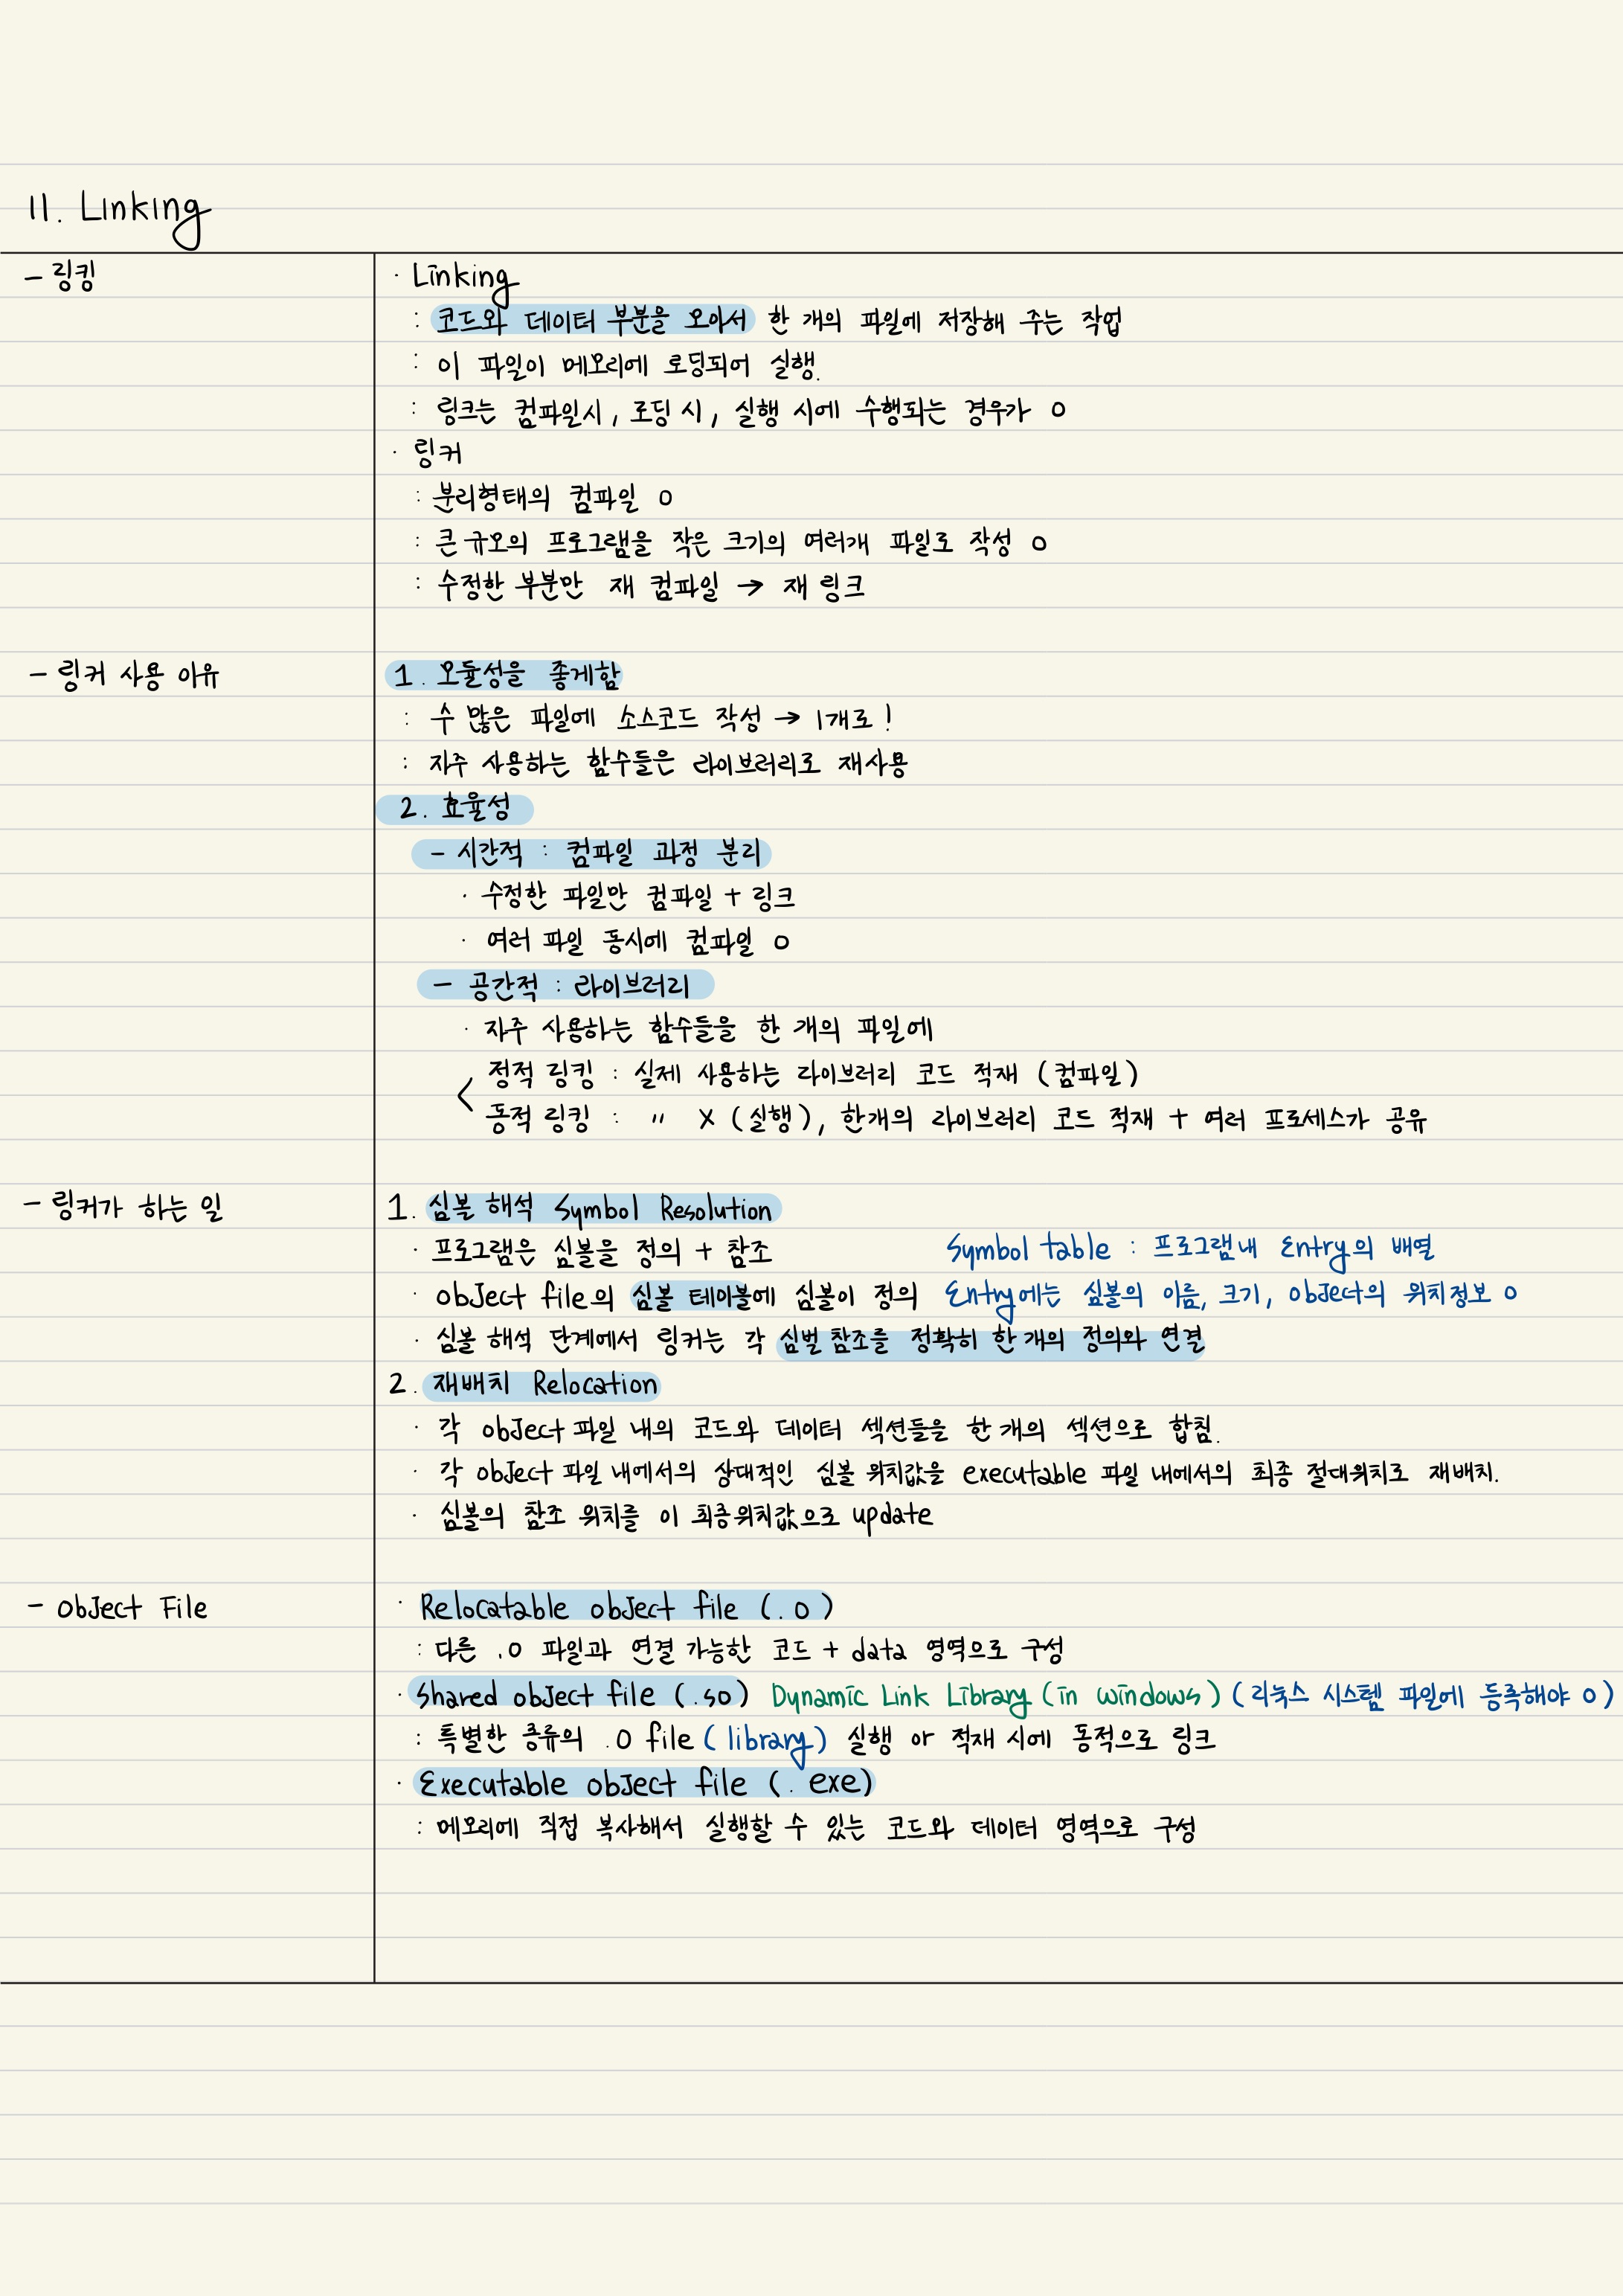 11. Linking
- 링킹
· Linking
: 코드와 데이터 부분을 모아서 한 개의 파일에 저장해 주는 작업
: 이 파일이 메모리에 로딩되어 실행.
: 링크는 컴파일시, 로딩 시, 실행 시에 수행되는 경우가 O
· 링커
: 분리형태의 컴파일 O
: 큰 규모의 프로그램을 작은 크기의 여러개 파일로 작성 O
: 수정한 부분만 재 컴파일 → 재 링크
- 링커 사용 이유
1. 모듈성을 좋게함
: 수 많은 파일에 소스코드 작성 → 1개로!
: 자주 사용하는 함수들은 라이브러리로 재사용
2. 효율성
- 시간적 : 컴파일 과정 분리
· 수정한 파일만 컴파일 + 링크
· 여러 파일 동시에 컴파일 O
- 공간적 : 라이브러리
· 자주 사용하는 함수들을 한 개의 파일에
< 정적 링킹 : 실제 사용하는 라이브러리 코드 적재 (컴파일)
동적 링킹 : 〃 X (실행), 한개의 라이브러리 코드 적재 + 여러 프로세스가 공유
- 링커가 하는 일
1. 심볼 해석 Symbol Resolution
· 프로그램은 심볼을 정의 + 참조 Symbol table : 프로그램내 Entry의 배열
· object file의 심볼 테이블에 심볼이 정의 Entry에는 심볼의 이름, 크기, object의 위치정보 O
· 심볼 해석 단계에서 링커는 각 심벌 참조를 정확히 한 개의 정의와 연결
2. 재배치 Relocation
· 각 object 파일 내의 코드와 데이터 섹션들을 한 개의 섹션으로 합침.
· 각 object 파일 내에서의 상대적인 심볼 위치값을 executable 파일 내에서의 최종 절대위치로 재배치.
· 심볼의 참조 위치를 이 최종위치값으로 update
- Object File
· Relocatable object file (.o)
: 다른 .o 파일과 연결 가능한 코드 + data 영역으로 구성
· Shared object file (.so) Dynamic Link Library (in windows) (리눅스 시스템 파일에 등록해야 O)
: 특별한 종류의 .o file (library) 실행 or 적재 시에 동적으로 링크
· Executable object file (.exe)
: 메모리에 직접 복사해서 실행할 수 있는 코드와 데이터 영역으로 구성